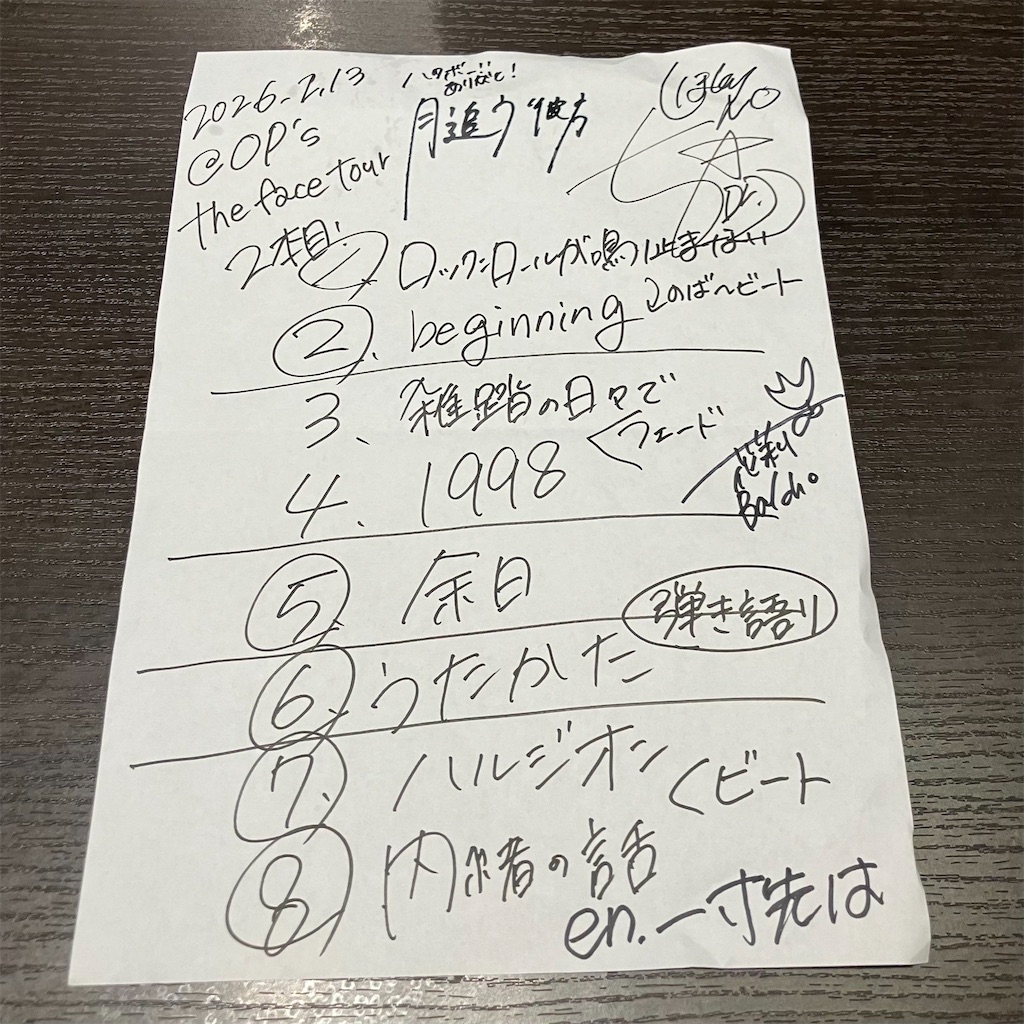 2026.2.13
@OP's
the face tour
2本目
ありがとう!
月追う彼方
1、ロックンロールが鳴り止まない
2、beginning このば〜ビート
3、雑踏の日々で
4、1998 フェード
5、余日
弾き語り
6、うたかた
7、ハルジオン ビート
8、内緒の話
en.一寸先は